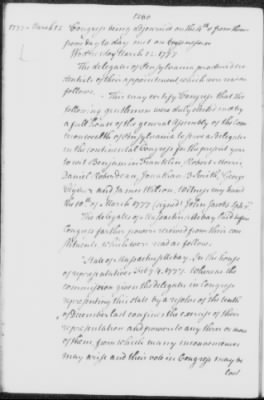 1777 March 12 Congress being adjourned on the 4th of from
from day to day met on
Wednesday March 12. 1777
The delegates of Pensylvania produced cre
dentials of their appointment, which were read as
follows.
"This may certify Congress that the
following gentlemen were duly elected by
a full house of the general Assembly of the Com
monwealth of Pensylvania to serve as delegates
in the continental Congress for the present year
to wit Benjamin Franklin Robert Morris
Daniel Roberdeau, Jonathan B. Smith, George
Clymer and James Wilson. Witness my hand
the 10th of March 1777 signed John Jacobs
The delegates of Massachusetts bay laid before
Congress farther powers received from their con
stituents which were read as follows
"State of Massachusetts bay. In the house
of representatives Feby 4. 1777. Whereas the
commission given the delegates in Congress
representing this state by a resolve of the tenth
of December last confines the exercise of their
representation and power to any three or more
of them from which many inconveniences
may arise and their vote in Congress may be
lost